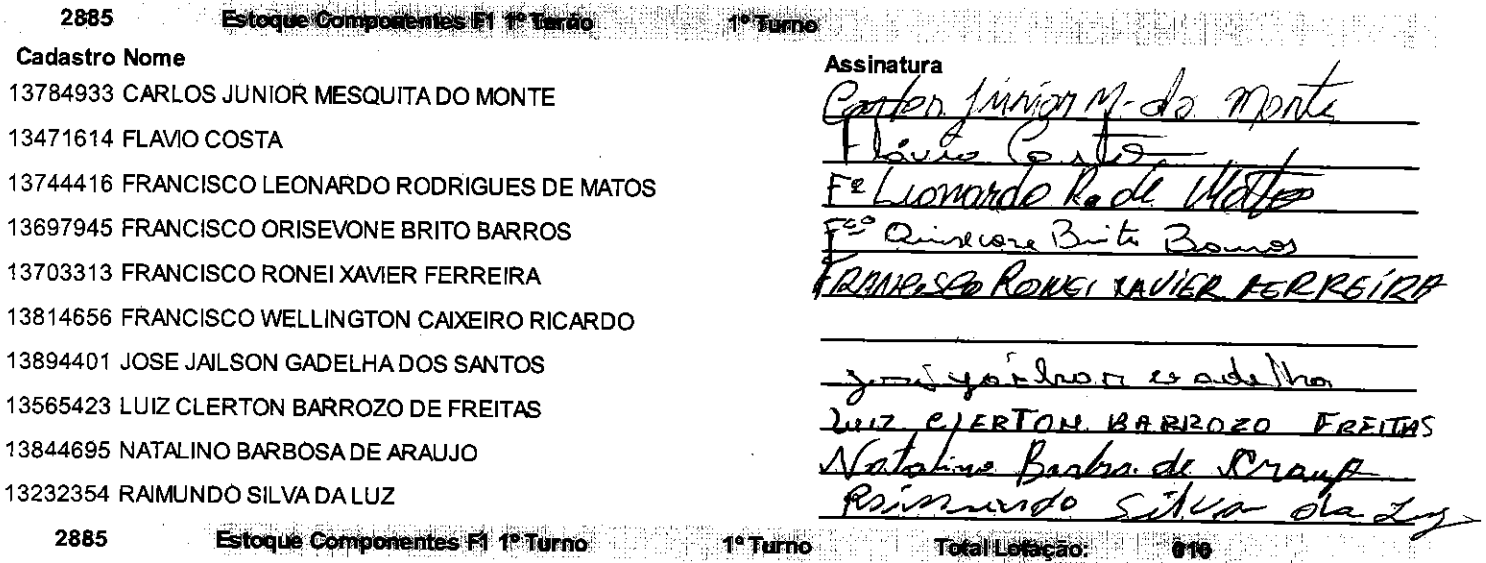 2885 Estoque Componentes F1 1º Turno 1º Turno
Cadastro Nome Assinatura
13784933 CARLOS JUNIOR MESQUITA DO MONTE Carlos Júnior M. do Monte
13471614 FLAVIO COSTA Flávio Costa
13744416 FRANCISCO LEONARDO RODRIGUES DE MATOS Fº Leonardo R. de Matos
13697945 FRANCISCO ORISEVONE BRITO BARROS Fcº Brito Barros
13703313 FRANCISCO RONEI XAVIER FERREIRA FRANCISCO RONEI XAVIER FERREIRA
13814656 FRANCISCO WELLINGTON CAIXEIRO RICARDO
13894401 JOSE JAILSON GADELHA DOS SANTOS José Gadelha
13565423 LUIZ CLERTON BARROZO DE FREITAS LUIZ CLERTON BARROZO FREITAS
13844695 NATALINO BARBOSA DE ARAUJO Natalino de
13232354 RAIMUNDO SILVA DA LUZ Raimundo Silva da Luz
2885 Estoque Componentes F1 1º Turno 1º Turno Total Lotação: 010